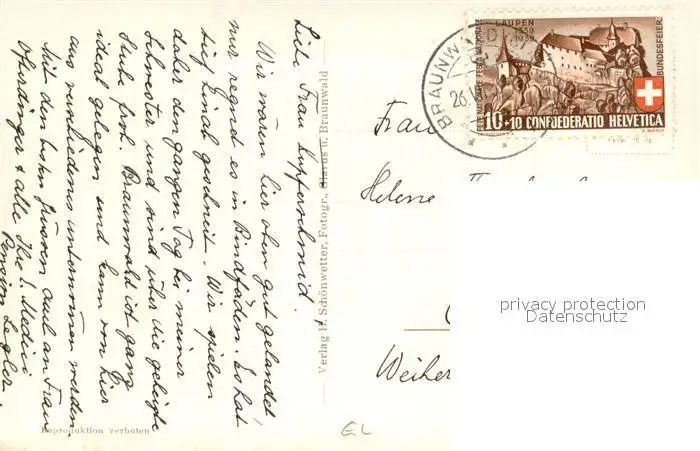 Liebe Frau Kupferschmid.
Wir wären hier oben gut gelandet
nur regnet es in Bindfäden. Es hat
tief hinab geschneit. Wir spielen
daher den ganzen Tag bei meiner
Schwester und sind über die geheizte
Stube froh. Braunwald ist ganz
ideal gelegen und kann von hier
aus verschiedenes unternommen werden.
Mit den besten Grüssen auch an Frau
& alle Ihre
Pension
Verlag H. Schönwetter, Fotogr., Glarus u. Braunwald
Reproduktion verboten
EL
BRAUNWALD
26.V
LAUPEN
1339
1939
BUNDESFEIER
10+10 CONFOEDERATIO HELVETICA
Frau
Helene
Weiher
privacy protection
Datenschutz